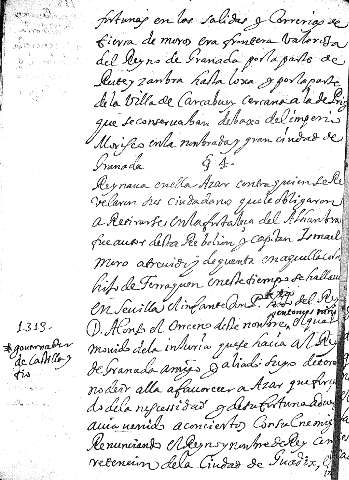 fortunas en las salidas y Correrias de
tierra de moros era frontera Valerosa
del Reyno de Granada por la parte de
Rute y zambra hasta loxa y por la parte
de la Villa de Carcabuey cercana a la de
que se conservaban debaxo del imperio
Morisco en la nombrada y gran ciudad de
Granada § 4.
Reynava en ella Azar contra quien se Re
velaron sus ciudadanos que le obligaron
a Retirarse en la fortaleza del Alhambra
fue autor desta Rebelion y capitan Ismael
moro atrevido y de quenta en aquella
hijo de ferraquen en este tiempo se hallava
en Sevilla el infante Don P. tio del Rey
D. Alonso el Onceno deste nombre el qual
movido de la injuria que se hacia al Rey
de Granada amigo y aliado suyo
a favorecer a Azar que
de la necessidad y de su fortuna
avia venido a conciertos con su Enemigo
Renunciando el Reyno y nombre de Rey con
retencion de la Ciudad de Guadix,
1319.
governador
de Castilla y
tio